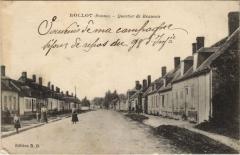 ROLLOT (Somme) - Quartier de Beauvais
Souvenir de ma campagne
séjour de repos du 98e Inf
Edition B. D.